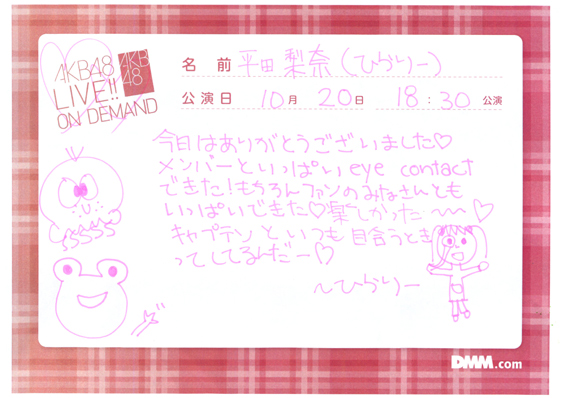 AKB48
LIVE!!
ON DEMAND
AKB
48
名 前 平田梨奈(ひらりー)
公演日 10月 20日 18:30 公演
今日はありがとうございました♡
メンバーといっぱい eye contact
できた!もちろんファンのみなさんとも
いっぱいできた♡楽しかった〜〜♡
キャプテンといつも目合うとき
ってしてるんだー♡
〜ひらりー
DMM.com